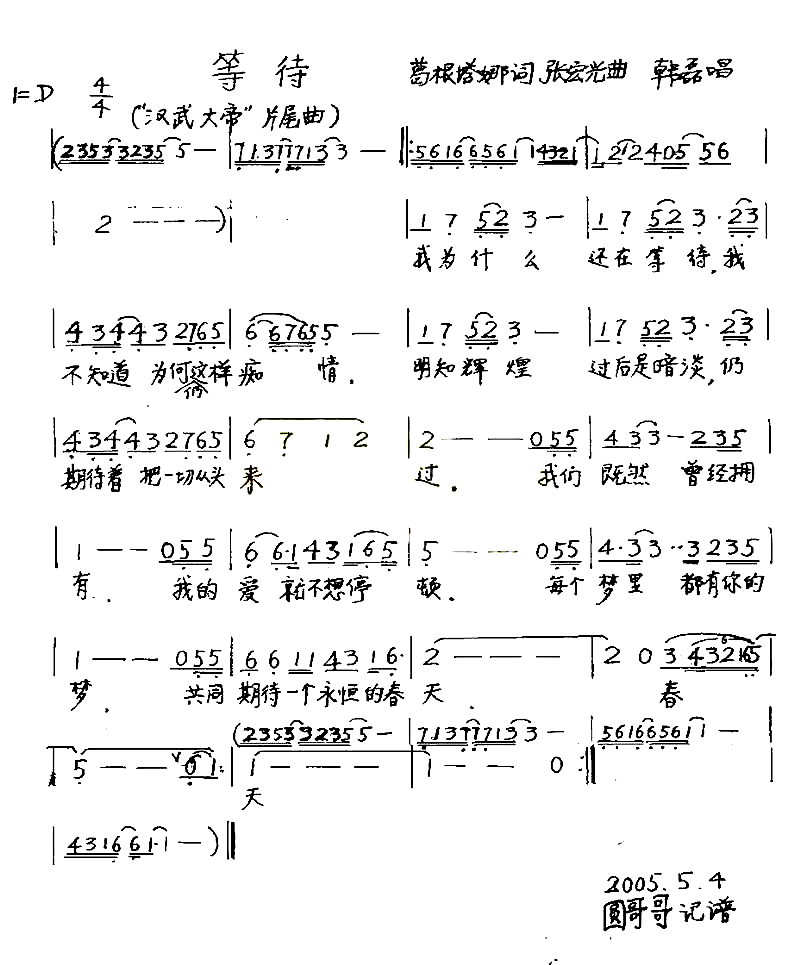 等待
葛根塔娜词 张宏光曲 韩磊唱
1=D 4/4
("汉武大帝"片尾曲)
(235333235 5 — | 713777133 — |: 561665611 4321 | 1 212405 56 |
| 2 — — —)| | 1 7 52 3 — | 1 7 52 3 · 23 |
我为什么 还在等待,我
| 4344322765 | 6 676555 — | 1 7 52 3 — | 1 7 52 3 · 23 |
不知道 为何这样痴 情. 明知辉煌 过后是暗淡,仍
俩
| 434432765 | 6 7 1 2 | 2 — — 055 | 433 — 235 |
期待着 把一切从头 来 过. 我们 既然 曾经拥
| 1 — — 055 | 6 6·143165 | 5 — — 055 | 4·33··3235 |
有. 我的 爱 就不想停 顿. 每个 梦里 都有你的
| 1 — — 055 | 6 6 11 43 16· | 2 — — — | 2 0 3 432165 |
梦. 共同 期待一个永恒的春 天. 春
(235333235 5 — | 713777133 — | 561665611 — |
| 5 — — ∨01 :| 1 — — — | 1 — — 0 :|
天
| 4316 61·1 — )‖
2005.5.4
圆哥哥记谱